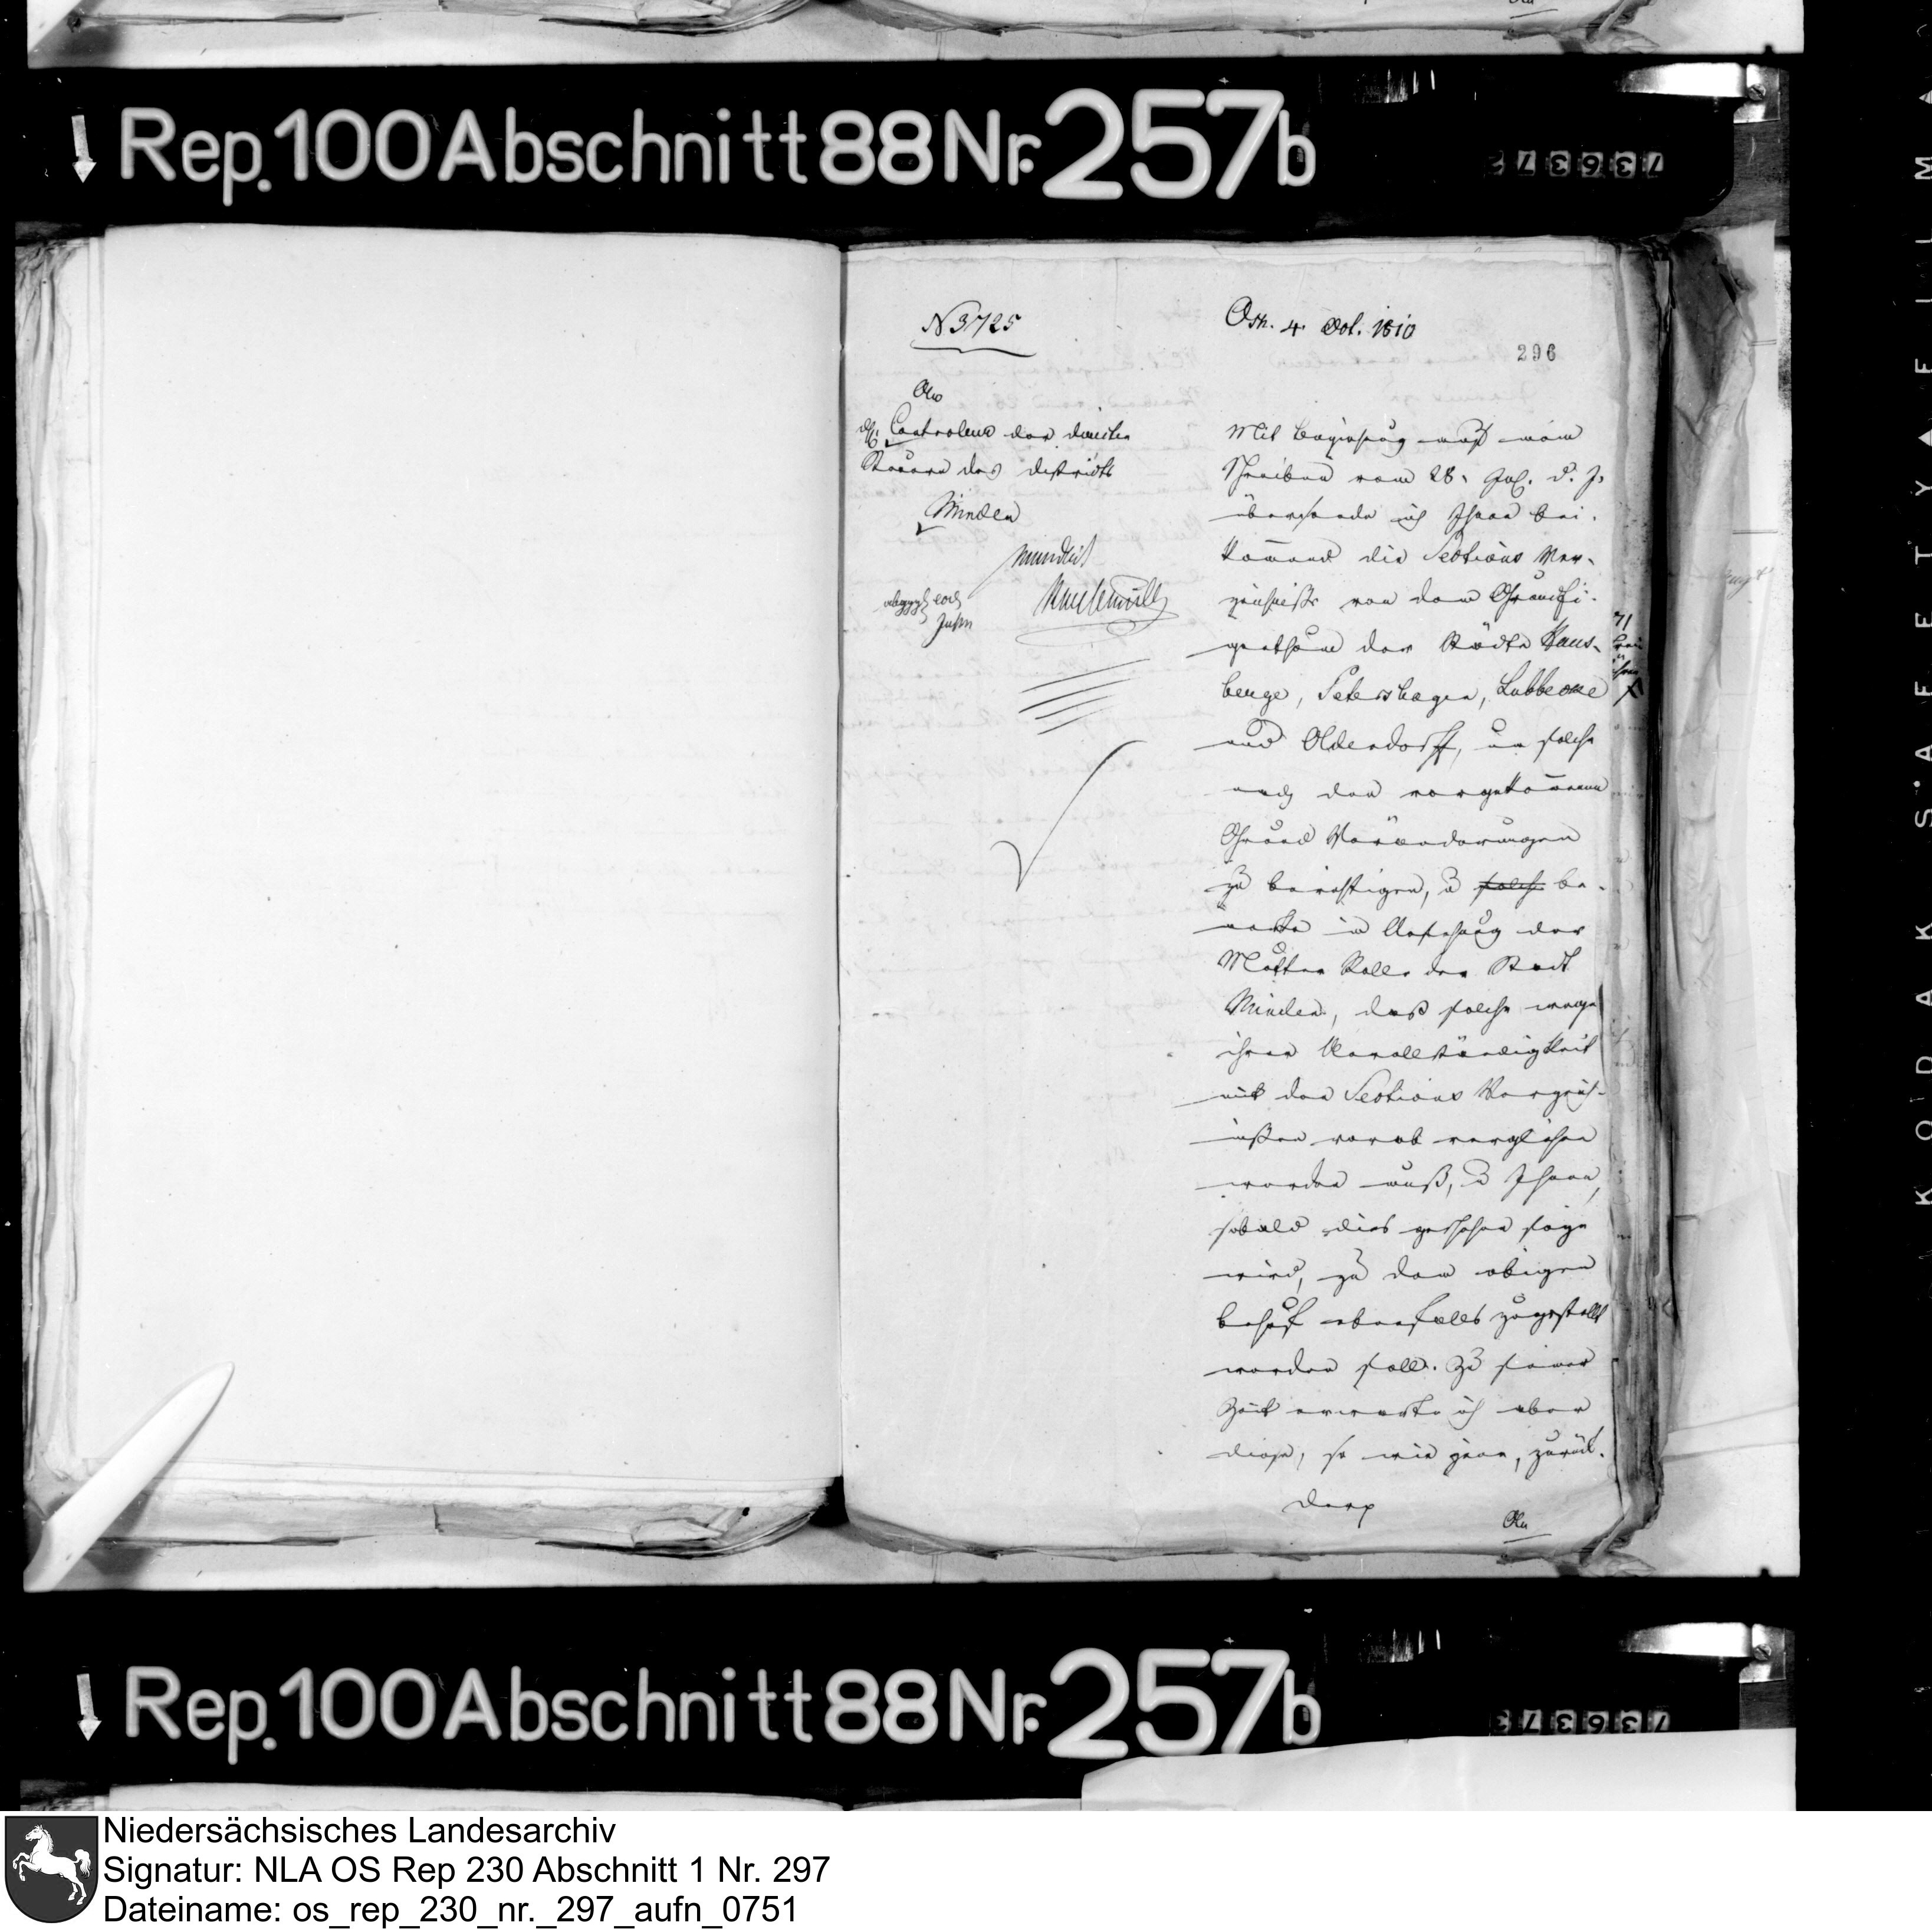 Rep. 100 Abschnitt 88 Nr. 257b
N 3725
Osn. 4. Oct. 1810
296
An
Controleur der directen
Steuern des Districts
Minden
mundirt
Mit Beziehung auf mein
Schreiben vom 28. Jul. d. J.
übersende ich Ihnen bei-
kommend die Sections Ver-
zeichniße von dem Grundei-
genthum der Städte Haus-
berge, Petershagen, Lübbecke
und Oldendorff, um solche
nach den vorgekommenen
Grund Veränderungen
zu berichtigen, u solche be-
merke in Ansehung der
Mutter Rolle der Stadt
Minden, daß solche wegen
ihrer Unvollständigkeit
mit den Sections Verzeich-
nißen vorab verglichen
werden muß, u Ihnen,
sobald dies geschehen seyn
wird, zu dem obigen
Behuf ebenfalls zugestellt
werden soll. Zu seiner
Zeit erwarte ich aber
diese, so wie jene, zurück.
Rep. 100 Abschnitt 88 Nr. 257b
Niedersächsisches Landesarchiv
Signatur: NLA OS Rep 230 Abschnitt 1 Nr. 297
Dateiname: os_rep_230_nr._297_aufn_0751